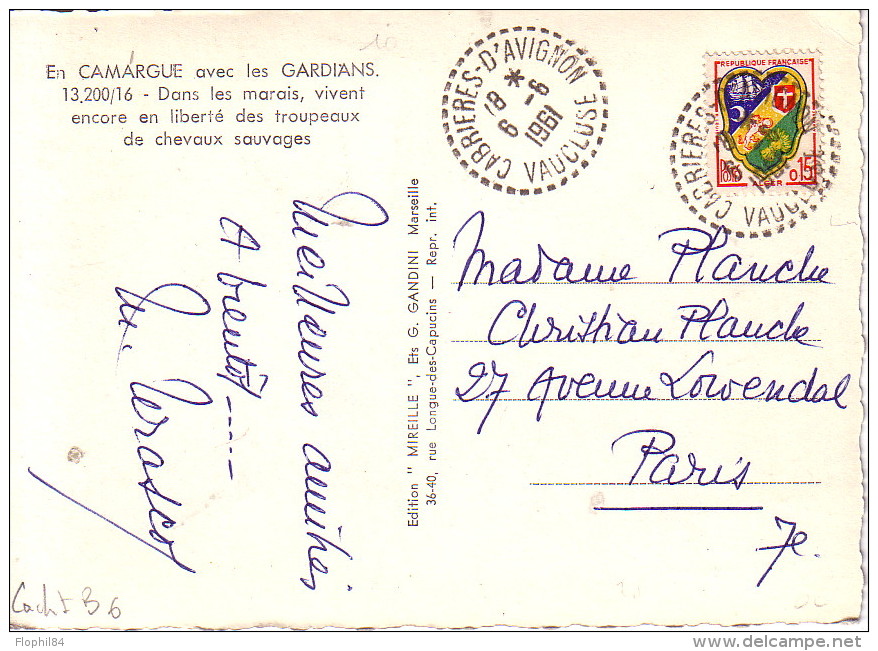 En CAMARGUE avec les GARDIANS.
13.200/16 - Dans les marais, vivent
encore en liberté des troupeaux
de chevaux sauvages
CABRIERES-D'AVIGNON
18 *
6 -6
1961
VAUCLUSE
REPUBLIQUE FRANÇAISE
POSTES
0.15
ALGER
CABRIERES
VAUCLUSE
Edition " MIREILLE ", Ets G. GANDINI Marseille
36-40, rue Longue-des-Capucins — Repr. int.
Meilleures amitiés
A bientôt -----
Madame Planche
Christian Planche
27 Avenue Lowendal
Paris
7e.
Cachet B6
Flophil84
delcampe.net